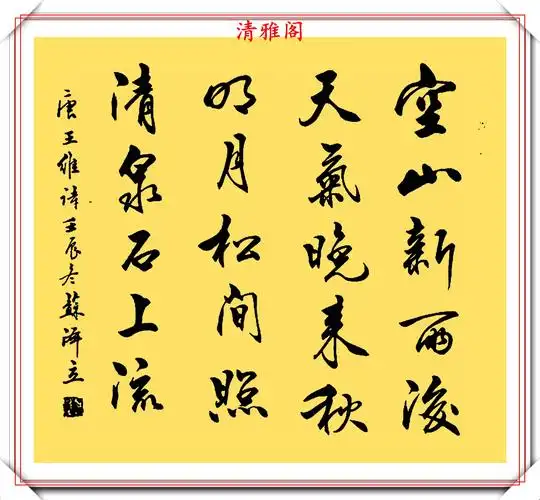 清雅阁
空山新雨後
天氣晚来秋
明月松间照
清泉石上流
唐王维诗壬辰冬蘇泽立